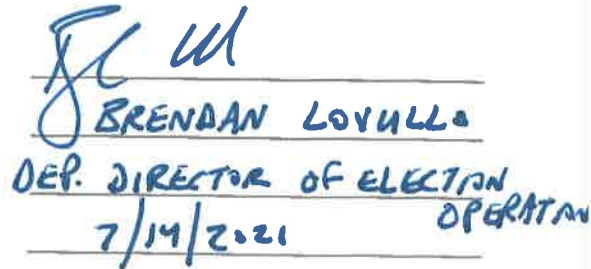 BRENDAN LOVULLO
DEP. DIRECTOR OF ELECTION
OPERATION
7/14/2021